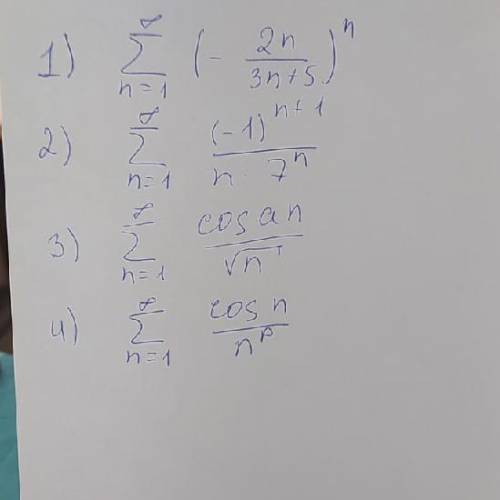 1) ∑_{n=1}^{∞} (- 2n/(3n+5))^n
2) ∑_{n=1}^{∞} (-1)^{n+1}/(n · 7^n)
3) ∑_{n=1}^{∞} cos an/√n
4) ∑_{n=1}^{∞} cos n/n^p